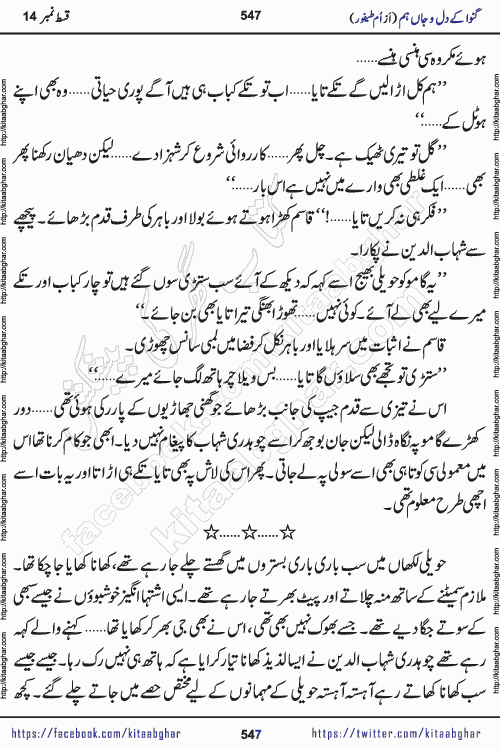 گنوا کے دل و جاں ہم (از اُم طیفور)
547
قسط نمبر 14
ہوئے مکروہ سی ہنسی ہنسے......
’’ہم کل اڑالیں گے تکے تایا......اب تو تکے کباب ہی ہیں آگے پوری حیاتی ......وہ بھی اپنے
ہوٹل کے.....‘‘
’’گل تو تیری ٹھیک ہے۔چل پھر......کارروائی شروع کر شہزادے......لیکن دھیان رکھنا پھر
بھی......ایک غلطی بھی وارے میں نہیں ہے اس بار.....‘‘
’’فکر ہی نہ کریں تایا......!‘‘ قاسم کھڑا ہوتے ہوئے بولا اور باہر کی طرف قدم بڑھائے۔پیچھے
سے شہاب الدین نے پکارا۔
’’یہ گامو کو حویلی بھیج اسے کہہ کہ دیکھ کے آئے سب سنڑی سوں گئے ہیں تو چار کباب اور تکے
میرے لیے بھی لے آئے۔کوئی نہیں......تھوڑا بھنگی تیرا تایا بھی بن جائے۔‘‘
قاسم نے اثبات میں سر ہلایا اور باہر نکل کر فضا میں لمبی سانس چھوڑی۔
’’سنڑی تو تجھے بھی سلاؤں گا تایا......بس ویلا چر ہاتھ لگ جائے میرے.....‘‘
اس نے تیزی سے قدم جیپ کی جانب بڑھائے جو گھنی جھاڑیوں کے پار رکی ہوئی تھی......دور
کھڑے گامو پہ نگاہ ڈالی لیکن جان بوجھ کر اسے چوہدری شہاب کا پیغام نہیں دیا۔ابھی جو کام کرنا تھا اس
میں معمولی سی کوتاہی بھی اسے سولی پہ لے جاتی۔پھر اس کی لاش پہ بھی تایا تکے ہی اڑاتا اور یہ بات اسے
اچھی طرح معلوم تھی۔
☆......☆......☆
حویلی لکھاں میں سب باری باری بستروں میں گھستے چلے جا رہے تھے،کھانا کھایا جا چکا تھا۔
ملازم سمیٹنے کے ساتھ منہ چلاتے اور پیٹ بھرتے جا رہے تھے۔ایسی اشتہا انگیز خوشبوؤں نے جیسے سبھی
کے سوتے جگا دیے تھے۔ جسے بھوک نہیں بھی تھی،اس نے بھی جی بھر کر کھایا تھا......کہنے والے کہہ
رہے تھے چوہدری شہاب الدین نے ایسا لذیذ کھانا تیار کرایا ہے کہ ہاتھ ہی نہیں رک رہا۔جیسے جیسے
سب کھانا کھاتے رہے آہستہ آہستہ حویلی کے مہمانوں کے لیے مختص حصے میں جاتے چلے گئے۔کچھ
https://facebook.com/kitaabghar
547
https://twitter.com/kitaabghar
http://kitaabghar.com